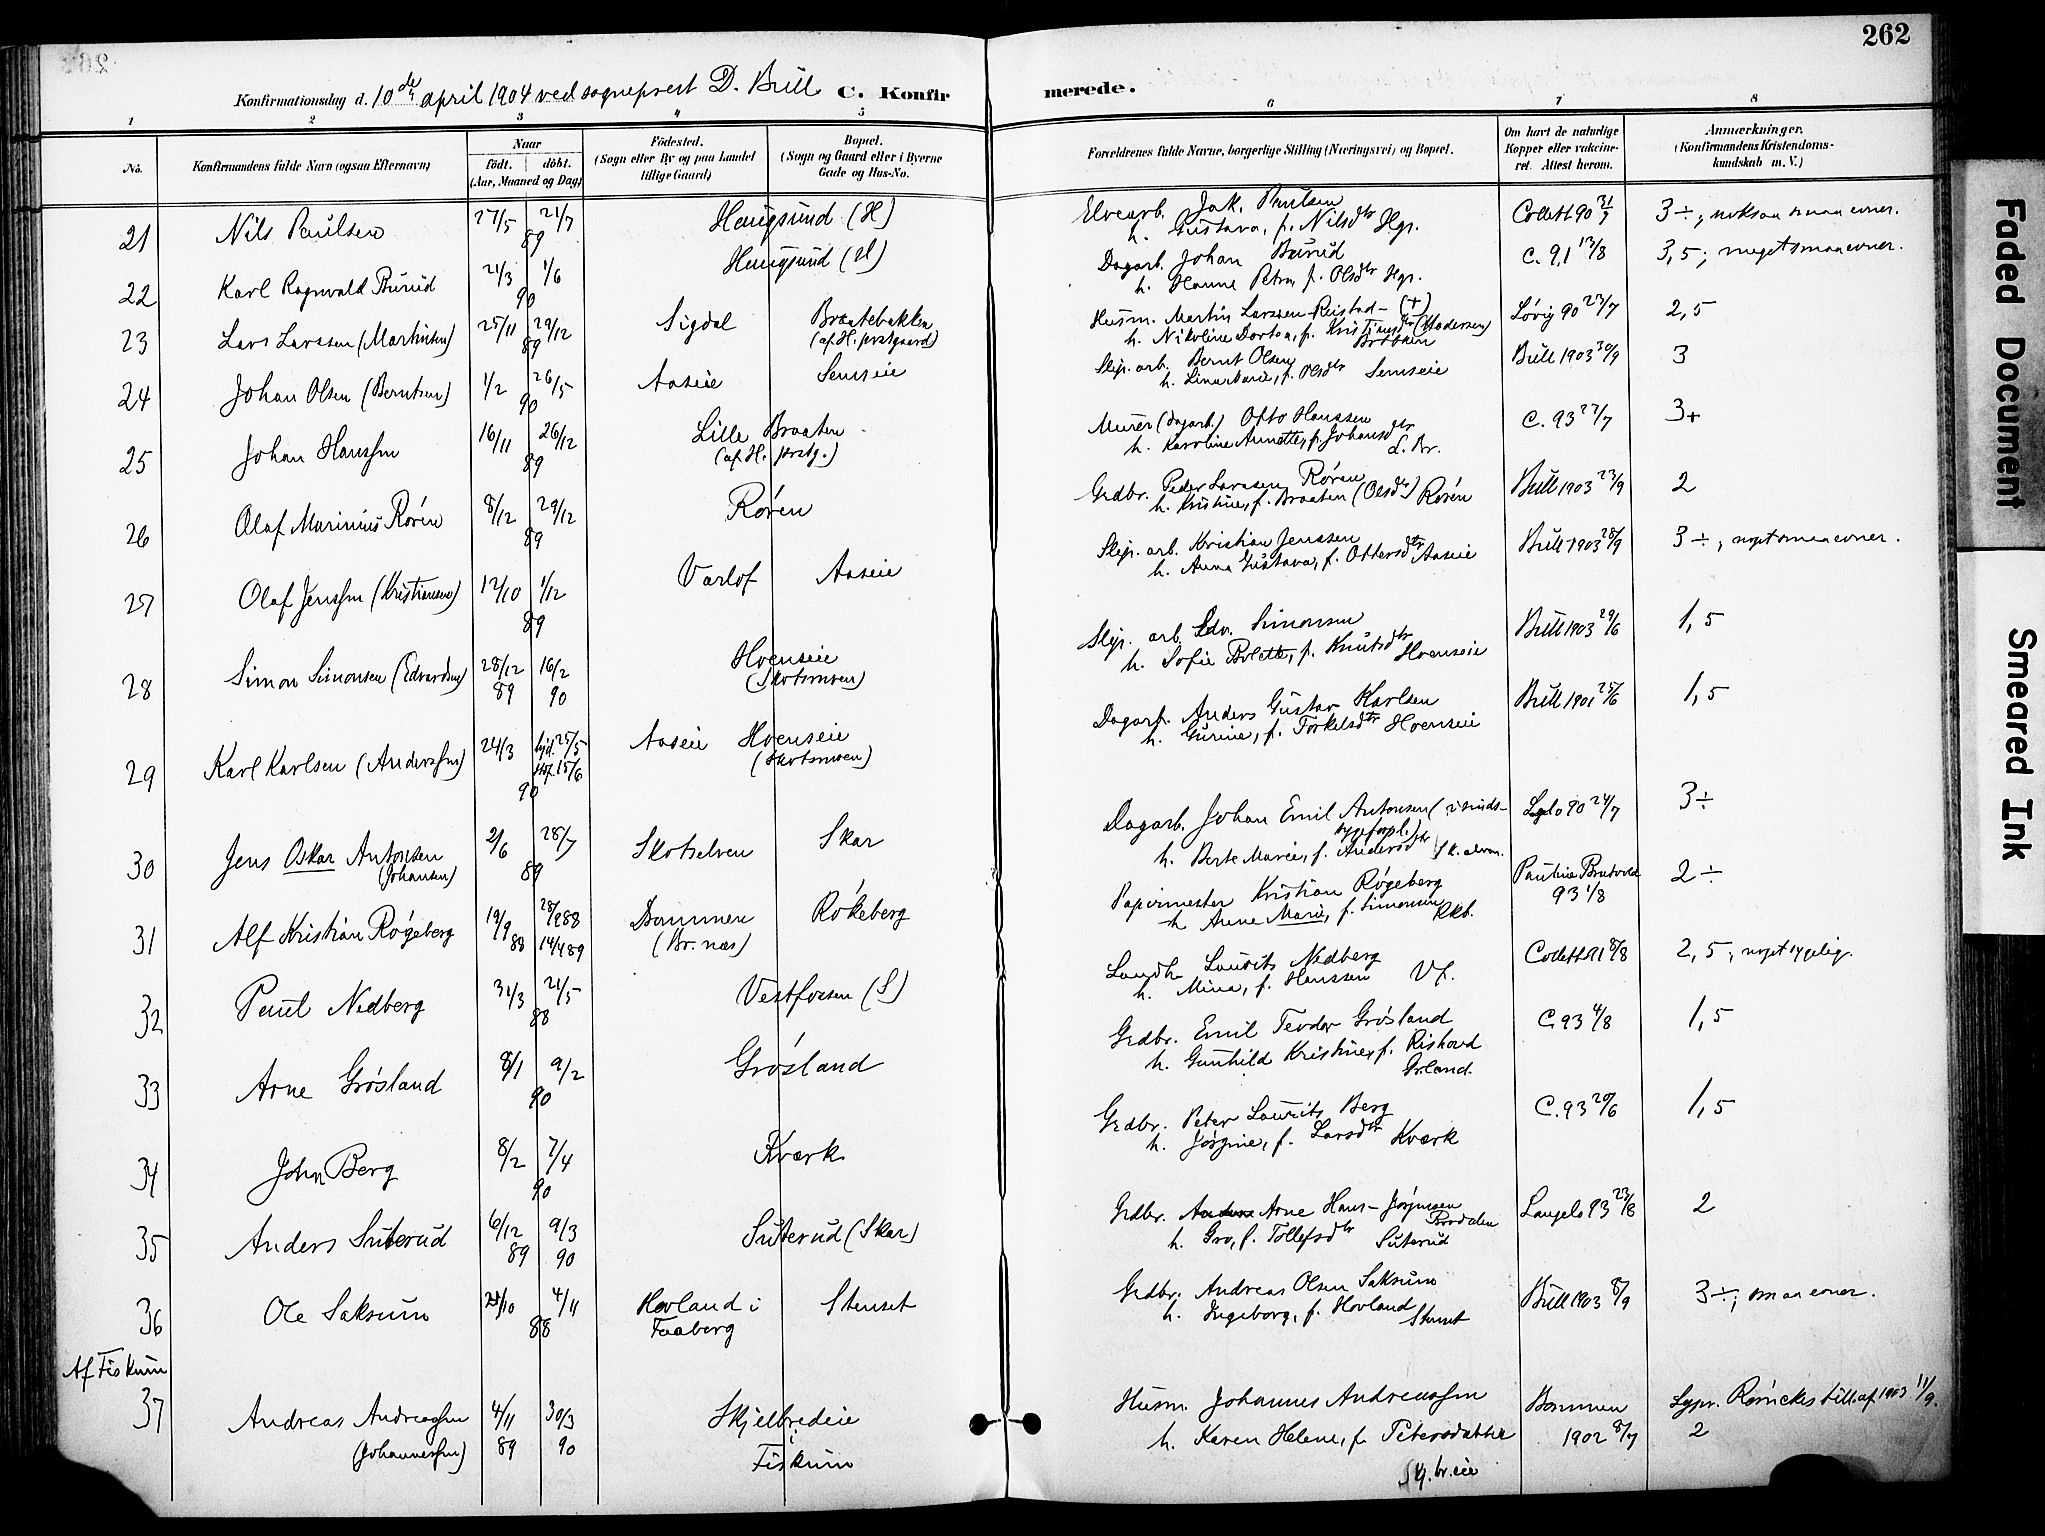 262
Konfirmationsdag d. 10de april 1904 ved sogneprest D. Bull C. Konfirmerede.
1 2 3 4 5 6 7 8
No.
Konfirmandens fulde Navn (ogsaa Efternavn)
Naar
födt. döbt.
(Aar, Maaned og Dag)
Födested.
(Sogn eller By og paa Landet tillige Gaard)
Bopæl.
(Sogn og Gaard eller i Byerne Gade og Hus-No.
Forældrenes fulde Navne, borgerlige Stilling (Næringsvei) og Bopæl.
Om havt de naturlige Kopper eller vaccineret. Attest herom.
Anmærkninger.
(Konfirmandens Kristendomskundskab m. V.)
21 Nils Paulsen 27/5 21/7 89 Haugsund (H)
Elvearb. Jak. Paulsen
h. Gustava, f. Nilsdtr Hgs.
Collett 90 3 ÷;
22 Karl Ragnvald Burud 21/3 1/6 90 Haugsund (H)
Dagarb. Johan Burud
h. Hanne Petra f. Olsdtr Hgs.
C. 91 13/8 3,5; meget smaa evner.
23 Lars Larssen (Martinsen) 25/11 29/12 89 Sigdal Braatebakken
(af H. prstgaard)
Husm. Martin Larssen Reistad (+)
h. Nikoline Dortea, f. Kristiansdtr
Løvig 90 23/7 2,5
24 Johan Olsen (Berntsen) 1/2 26/5 90 Aaseie Semseie
Slip. arb. Bernt Olsen
f. Olsdtr Semseie
Bull 1903 30/9 3
25 Johan Hanssen 16/11 26/12 89 Lille Braaten
(af H. prstg.)
Murer (dagarb.) Otto Hanssen
h. Karoline Annette, f. Johansdtr
L. Br.
C. 93 27/7 3+
26 Olaf Marinius Røren 8/12 29/12 89 Røren
Grdbr. Peder Larssen Røren
h. Kristine, f. Braaten (Olsdtr) Røren
Bull 1903 23/9 2
27 Olaf Jenssen (Kristiansen) 12/10 1/12 89 Varlof Aaseie
Slip. arb. Kristian Jenssen
h. Anna Gustava, f. Ottersdtr Aaseie
Bull 1903 28/9 3 ÷; noget smaa evner.
28 Simon Simonsen (Edvardsen) 28/12 89 16/2 90 Hoenseie
(Skotsmoen)
Slip. arb. Edv. Simonsen
h. Sofie Bolette, f. Knutsdtr Hoenseie
Bull 1903 29/6 1,5
29 Karl Karlsen (Anderssen) 24/3 hjd. 25/5 15/6 90 Aaseie Hoenseie
(Skotsmoen)
Dagarb. Anders Gustav Karlsen
h. Gurine, f. Torkelsdtr Hoenseie
Bull 1901 25/6 1,5
30 Jens Oskar Antonsen
(Johansen) 2/6 28/7 89 Skotselven Skar
Dagarb. Johan Emil Antonsen
h. Berte Marie, f. Andersdtr
90 24/7 3÷
31 Alf Kristian Røgeberg 19/9 88 28/9 88 14/4 89 Drammen
(Br. næs) Røkeberg
Papirmester Kristian Røgeberg
h. Anne Marie, f. Simonsen Rkb.
Pauline
93 1/8 2 ÷
32 Paul Nedberg 31/3 21/5 88 Vestfossen (S)
Landh. Laurits Nedberg
h. Mina, f. Hanssen Vf.
Collett 91 8/8 2,5; noget sygelig.
33 Arne Grøsland 8/1 9/2 90 Grøsland
Grdbr. Emil Teodor Grøsland
h. Gunhild Kristine, f. Rishovd
Grland.
C 93 4/8 1,5
34 John Berg 8/2 7/4 90 Kværk
Grdbr. Peter Laurits Berg
h. Jørgine, f. Larsdtr Kværk
C. 93 20/6 1,5
35 Anders Suterud 6/12 89 9/3 90 Suterud (Skar)
Grdbr. Arne Hans-Jørgensen
h. Gro, f. Tollefsdtr Suterud
Langelo 93 23/8 2
36 Ole Saksum 4/11 88 Hovland i
Faaberg Stenset
Grdbr. Andreas Olsen Saksum
h. Ingeborg, f. Hovland
Stenset
Bull 1903 8/9 3 ÷; smaa evner.
Af Fiskum
37 Andreas Andreassen
(Johannessen) 4/11 89 30/3 90 Skjelbredeie
i
Fiskum
Husm. Johannes Andreassen
h. Karen Helene, f. Petersdatter
Skj. br. eie
1902 8/7
1903 11/9.
2
Faded Document
Smeared Ink